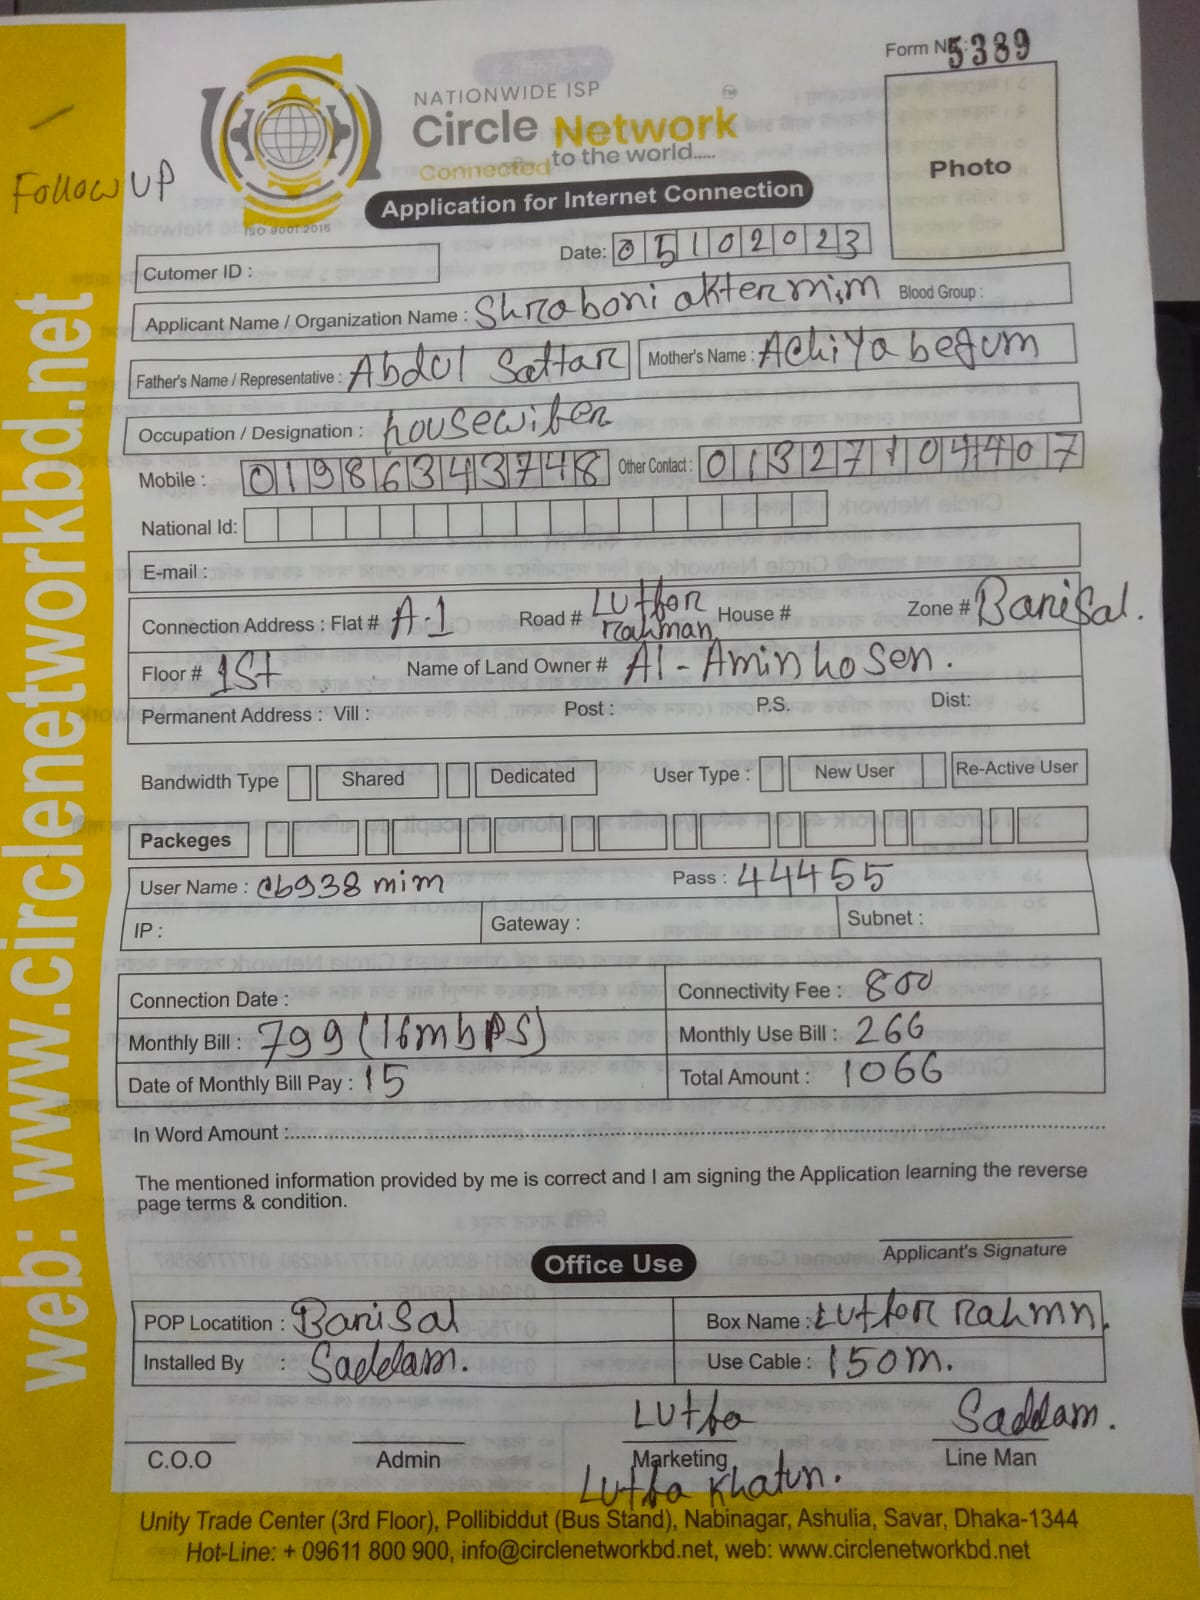 Form No: 5389
NATIONWIDE ISP
Circle Network TM
Connected to the world.....
Photo
Follow UP
ISO 9001:2015
Application for Internet Connection
Date: 05102023
Cutomer ID :
Applicant Name / Organization Name : Shraboni akter mim Blood Group :
Father's Name / Representative : Abdul Sattar Mother's Name : Achiya begum
Occupation / Designation : housewifer
Mobile : 01986343748 Other Contact : 01327104407
National Id:
E-mail :
Connection Address : Flat # A-1 Road # Lutfor rahman House # Zone # Barisal.
Floor # 1st Name of Land Owner # Al-Amin hosen.
Permanent Address : Vill : Post : P.S. Dist:
Bandwidth Type Shared Dedicated User Type : New User Re-Active User
Packeges
User Name : cb938 mim Pass : 44455
IP : Gateway : Subnet :
Connection Date : Connectivity Fee : 800
Monthly Bill : 799 (16mbPS) Monthly Use Bill : 266
Date of Monthly Bill Pay : 15 Total Amount : 1066
In Word Amount :
The mentioned information provided by me is correct and I am signing the Application learning the reverse
page terms & condition.
Applicant's Signature
Office Use
POP Locatition : Barisal Box Name : Lutfor rahmn.
Installed By : Saddam. Use Cable : 150m.
Lutfa Saddam.
C.O.O Admin Marketing Line Man
Lutfa Khatun.
Unity Trade Center (3rd Floor), Pollibiddut (Bus Stand), Nabinagar, Ashulia, Savar, Dhaka-1344
Hot-Line: + 09611 800 900, info@circlenetworkbd.net, web: www.circlenetworkbd.net
web: www.circlenetworkbd.net